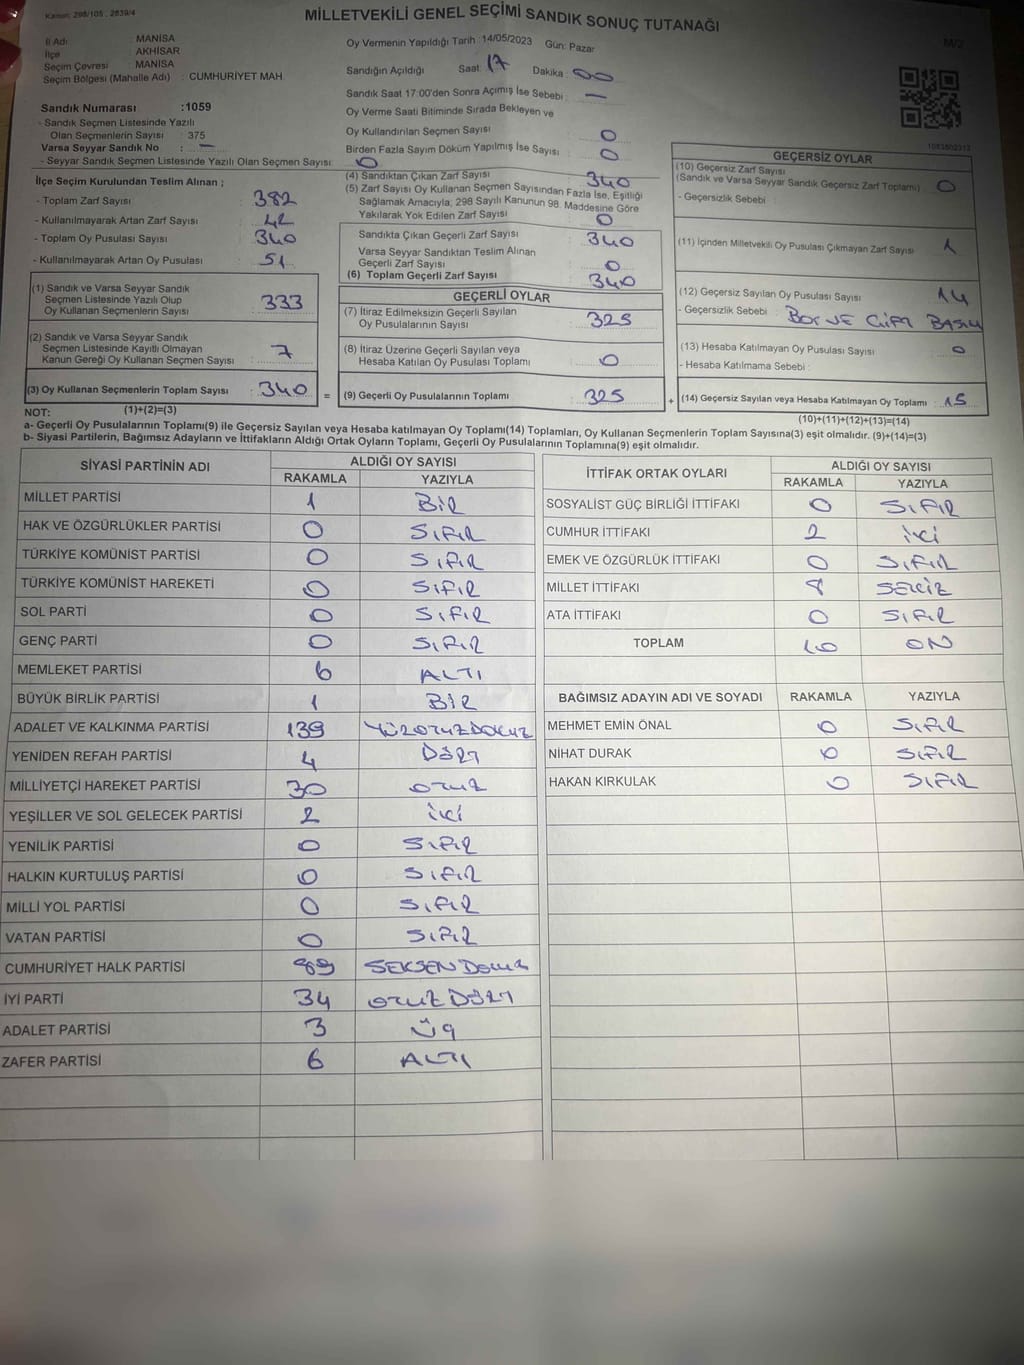 Kanun: 298/105, 2839/4
MİLLETVEKİLİ GENEL SEÇİMİ SANDIK SONUÇ TUTANAĞI
M/2
İl Adı : MANİSA
İlçe : AKHİSAR
Seçim Çevresi : MANİSA
Seçim Bölgesi (Mahalle Adı) : CUMHURİYET MAH.
Sandık Numarası :1059
- Sandık Seçmen Listesinde Yazılı
Olan Seçmenlerin Sayısı : 375
Varsa Seyyar Sandık No : —
- Seyyar Sandık Seçmen Listesinde Yazılı Olan Seçmen Sayısı: 0
Oy Vermenin Yapıldığı Tarih :14/05/2023 Gün: Pazar
Sandığın Açıldığı Saat: 17 Dakika : 00
Sandık Saat 17:00'den Sonra Açımış İse Sebebi : —
Oy Verme Saati Bitiminde Sırada Bekleyen ve
Oy Kullandırılan Seçmen Sayısı : 0
Birden Fazla Sayım Döküm Yapılmış İse Sayısı : 0
1083802313
İlçe Seçim Kurulundan Teslim Alınan ;
- Toplam Zarf Sayısı : 382
- Kullanılmayarak Artan Zarf Sayısı : 42
- Toplam Oy Pusulası Sayısı : 340
- Kullanılmayarak Artan Oy Pusulası : 51
(1) Sandık ve Varsa Seyyar Sandık
Seçmen Listesinde Yazılı Olup
Oy Kullanan Seçmenlerin Sayısı : 333
(2) Sandık ve Varsa Seyyar Sandık
Seçmen Listesinde Kayıtlı Olmayan
Kanun Gereği Oy Kullanan Seçmen Sayısı : 7
(3) Oy Kullanan Seçmenlerin Toplam Sayısı : 340
(1)+(2)=(3)
(4) Sandıktan Çıkan Zarf Sayısı : 340
(5) Zarf Sayısı Oy Kullanan Seçmen Sayısından Fazla İse, Eşitliği
Sağlamak Amacıyla, 298 Sayılı Kanunun 98. Maddesine Göre
Yakılarak Yok Edilen Zarf Sayısı : 0
Sandıkta Çıkan Geçerli Zarf Sayısı : 340
Varsa Seyyar Sandıktan Teslim Alınan
Geçerli Zarf Sayısı : 0
(6) Toplam Geçerli Zarf Sayısı : 340
GEÇERLİ OYLAR
(7) İtiraz Edilmeksizin Geçerli Sayılan
Oy Pusulalarının Sayısı : 325
(8) İtiraz Üzerine Geçerli Sayılan veya
Hesaba Katılan Oy Pusulası Toplamı : 0
= (9) Geçerli Oy Pusulalarının Toplamı : 325
GEÇERSİZ OYLAR
(10) Geçersiz Zarf Sayısı
(Sandık ve Varsa Seyyar Sandık Geçersiz Zarf Toplamı) : 0
- Geçersizlik Sebebi :
(11) İçinden Milletvekili Oy Pusulası Çıkmayan Zarf Sayısı : 1
(12) Geçersiz Sayılan Oy Pusulası Sayısı : 14
- Geçersizlik Sebebi : BOŞ VE ÇİFT BASIM
(13) Hesaba Katılmayan Oy Pusulası Sayısı : 0
- Hesaba Katılmama Sebebi :
+ (14) Geçersiz Sayılan veya Hesaba Katılmayan Oy Toplamı : 15
(10)+(11)+(12)+(13)=(14)
NOT:
a- Geçerli Oy Pusulalarının Toplamı(9) ile Geçersiz Sayılan veya Hesaba katılmayan Oy Toplamı(14) Toplamları, Oy Kullanan Seçmenlerin Toplam Sayısına(3) eşit olmalıdır. (9)+(14)=(3)
b- Siyasi Partilerin, Bağımsız Adayların ve İttifakların Aldığı Ortak Oyların Toplamı, Geçerli Oy Pusulalarının Toplamına(9) eşit olmalıdır.
SİYASİ PARTİNİN ADI ALDIĞI OY SAYISI
RAKAMLA YAZIYLA
MİLLET PARTİSİ 1 BİR
HAK VE ÖZGÜRLÜKLER PARTİSİ 0 SIFIR
TÜRKİYE KOMÜNİST PARTİSİ 0 SIFIR
TÜRKİYE KOMÜNİST HAREKETİ 0 SIFIR
SOL PARTİ 0 SIFIR
GENÇ PARTİ 0 SIFIR
MEMLEKET PARTİSİ 6 ALTI
BÜYÜK BİRLİK PARTİSİ 1 BİR
ADALET VE KALKINMA PARTİSİ 139 YÜZOTUZDOKUZ
YENİDEN REFAH PARTİSİ 4 DÖRT
MİLLİYETÇİ HAREKET PARTİSİ 30 OTUZ
YEŞİLLER VE SOL GELECEK PARTİSİ 2 İKİ
YENİLİK PARTİSİ 0 SIFIR
HALKIN KURTULUŞ PARTİSİ 0 SIFIR
MİLLİ YOL PARTİSİ 0 SIFIR
VATAN PARTİSİ 0 SIFIR
CUMHURİYET HALK PARTİSİ 89 SEKSENDOKUZ
İYİ PARTİ 34 OTUZDÖRT
ADALET PARTİSİ 3 ÜÇ
ZAFER PARTİSİ 6 ALTI
İTTİFAK ORTAK OYLARI ALDIĞI OY SAYISI
RAKAMLA YAZIYLA
SOSYALİST GÜÇ BİRLİĞİ İTTİFAKI 0 SIFIR
CUMHUR İTTİFAKI 2 İKİ
EMEK VE ÖZGÜRLÜK İTTİFAKI 0 SIFIR
MİLLET İTTİFAKI 8 SEKİZ
ATA İTTİFAKI 0 SIFIR
TOPLAM 10 ON
BAĞIMSIZ ADAYIN ADI VE SOYADI RAKAMLA YAZIYLA
MEHMET EMİN ÖNAL 0 SIFIR
NİHAT DURAK 0 SIFIR
HAKAN KIRKULAK 0 SIFIR